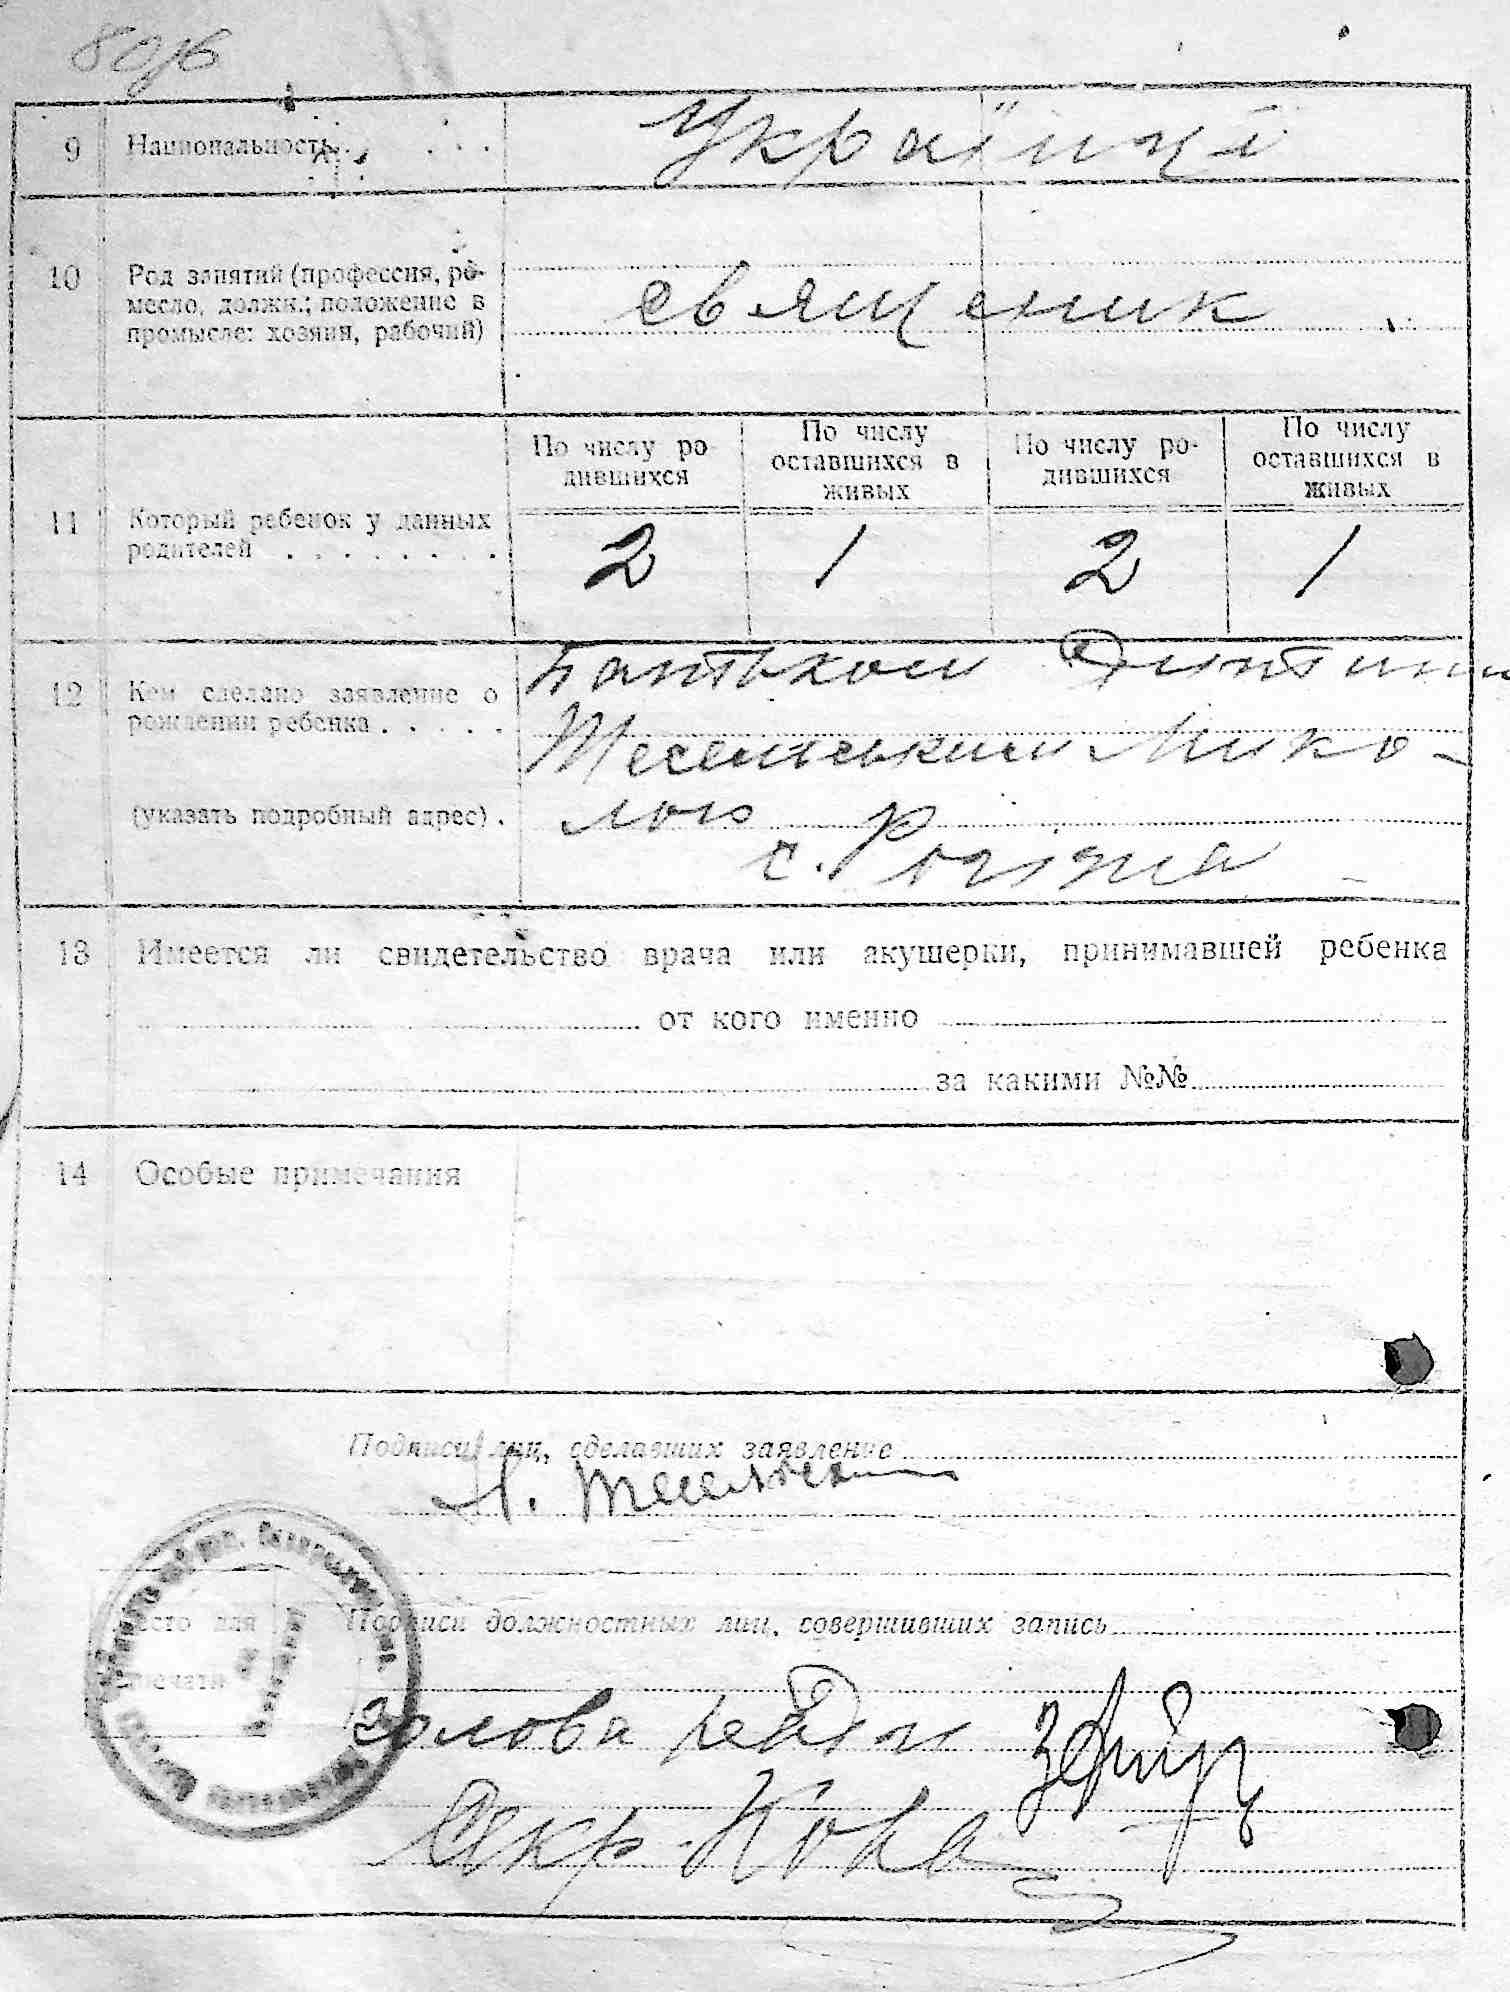 80
9 Национальность Українці
10 Род занятий (профессия, ре-
месло, должн.; положение в
промысле: хозяин, рабочий)
священик
По числу ро-
дившихся
По числу
оставшихся в
живых
По числу ро-
дившихся
По числу
оставшихся в
живых
11 Который ребенок у данных
родителей
2 1 2 1
12 Кем сделано заявление о
рождении ребенка
(указать подробный адрес)
Батьком Дитини
Микo-
лою
с.
13 Имеется ли свидетельство врача или акушерки, принимавшей ребенка
от кого именно
за какими №№
14 Особые примечания
Подписи лиц, сделавших заявление
Место для
печати
Подписи должностных лиц, совершивших запись
голова
Секр.